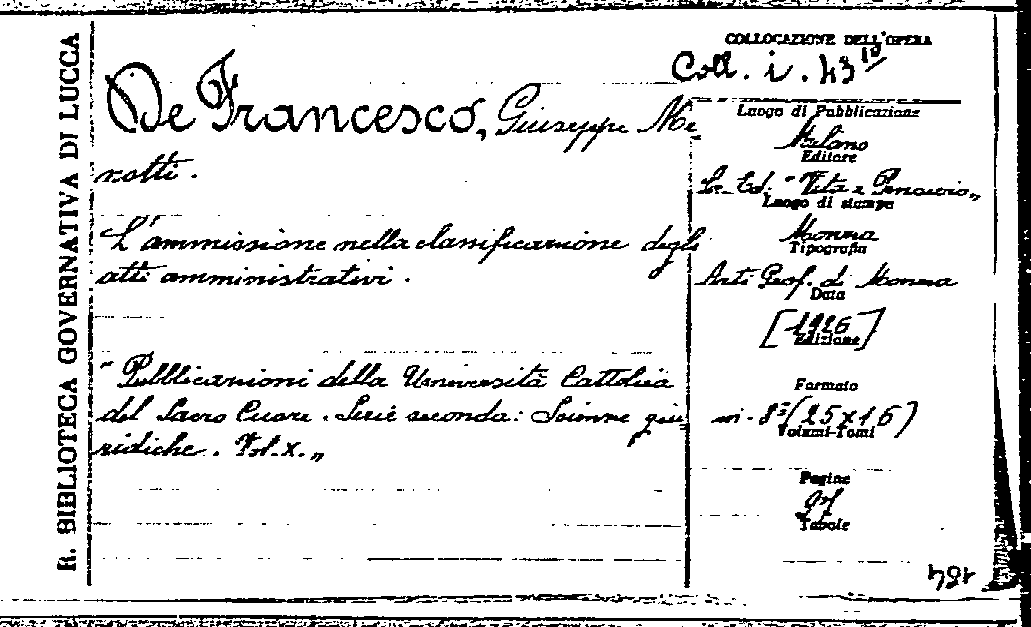 R. BIBLIOTECA GOVERNATIVA DI LUCCA
De Francesco, Giuseppe Me-
notti.
L'ammissione nella classificazione degli
atti amministrativi.
"Pubblicazioni della Università Cattolica
del Sacro Cuore. Serie seconda: Scienze giu-
ridiche. Vol. X.„
COLLOCAZIONE DELL'OPERA
Coll. i. 43 10
Luogo di Pubblicazione
Milano
Editore
So. Ed. "Vita e Pensiero„
Luogo di stampa
Monza
Tipografia
Arti Graf. di Monza
Data
[1926]
Edizione
Formato
in-8° (25x16)
Volumi-Tomi
Pagine
Tavole